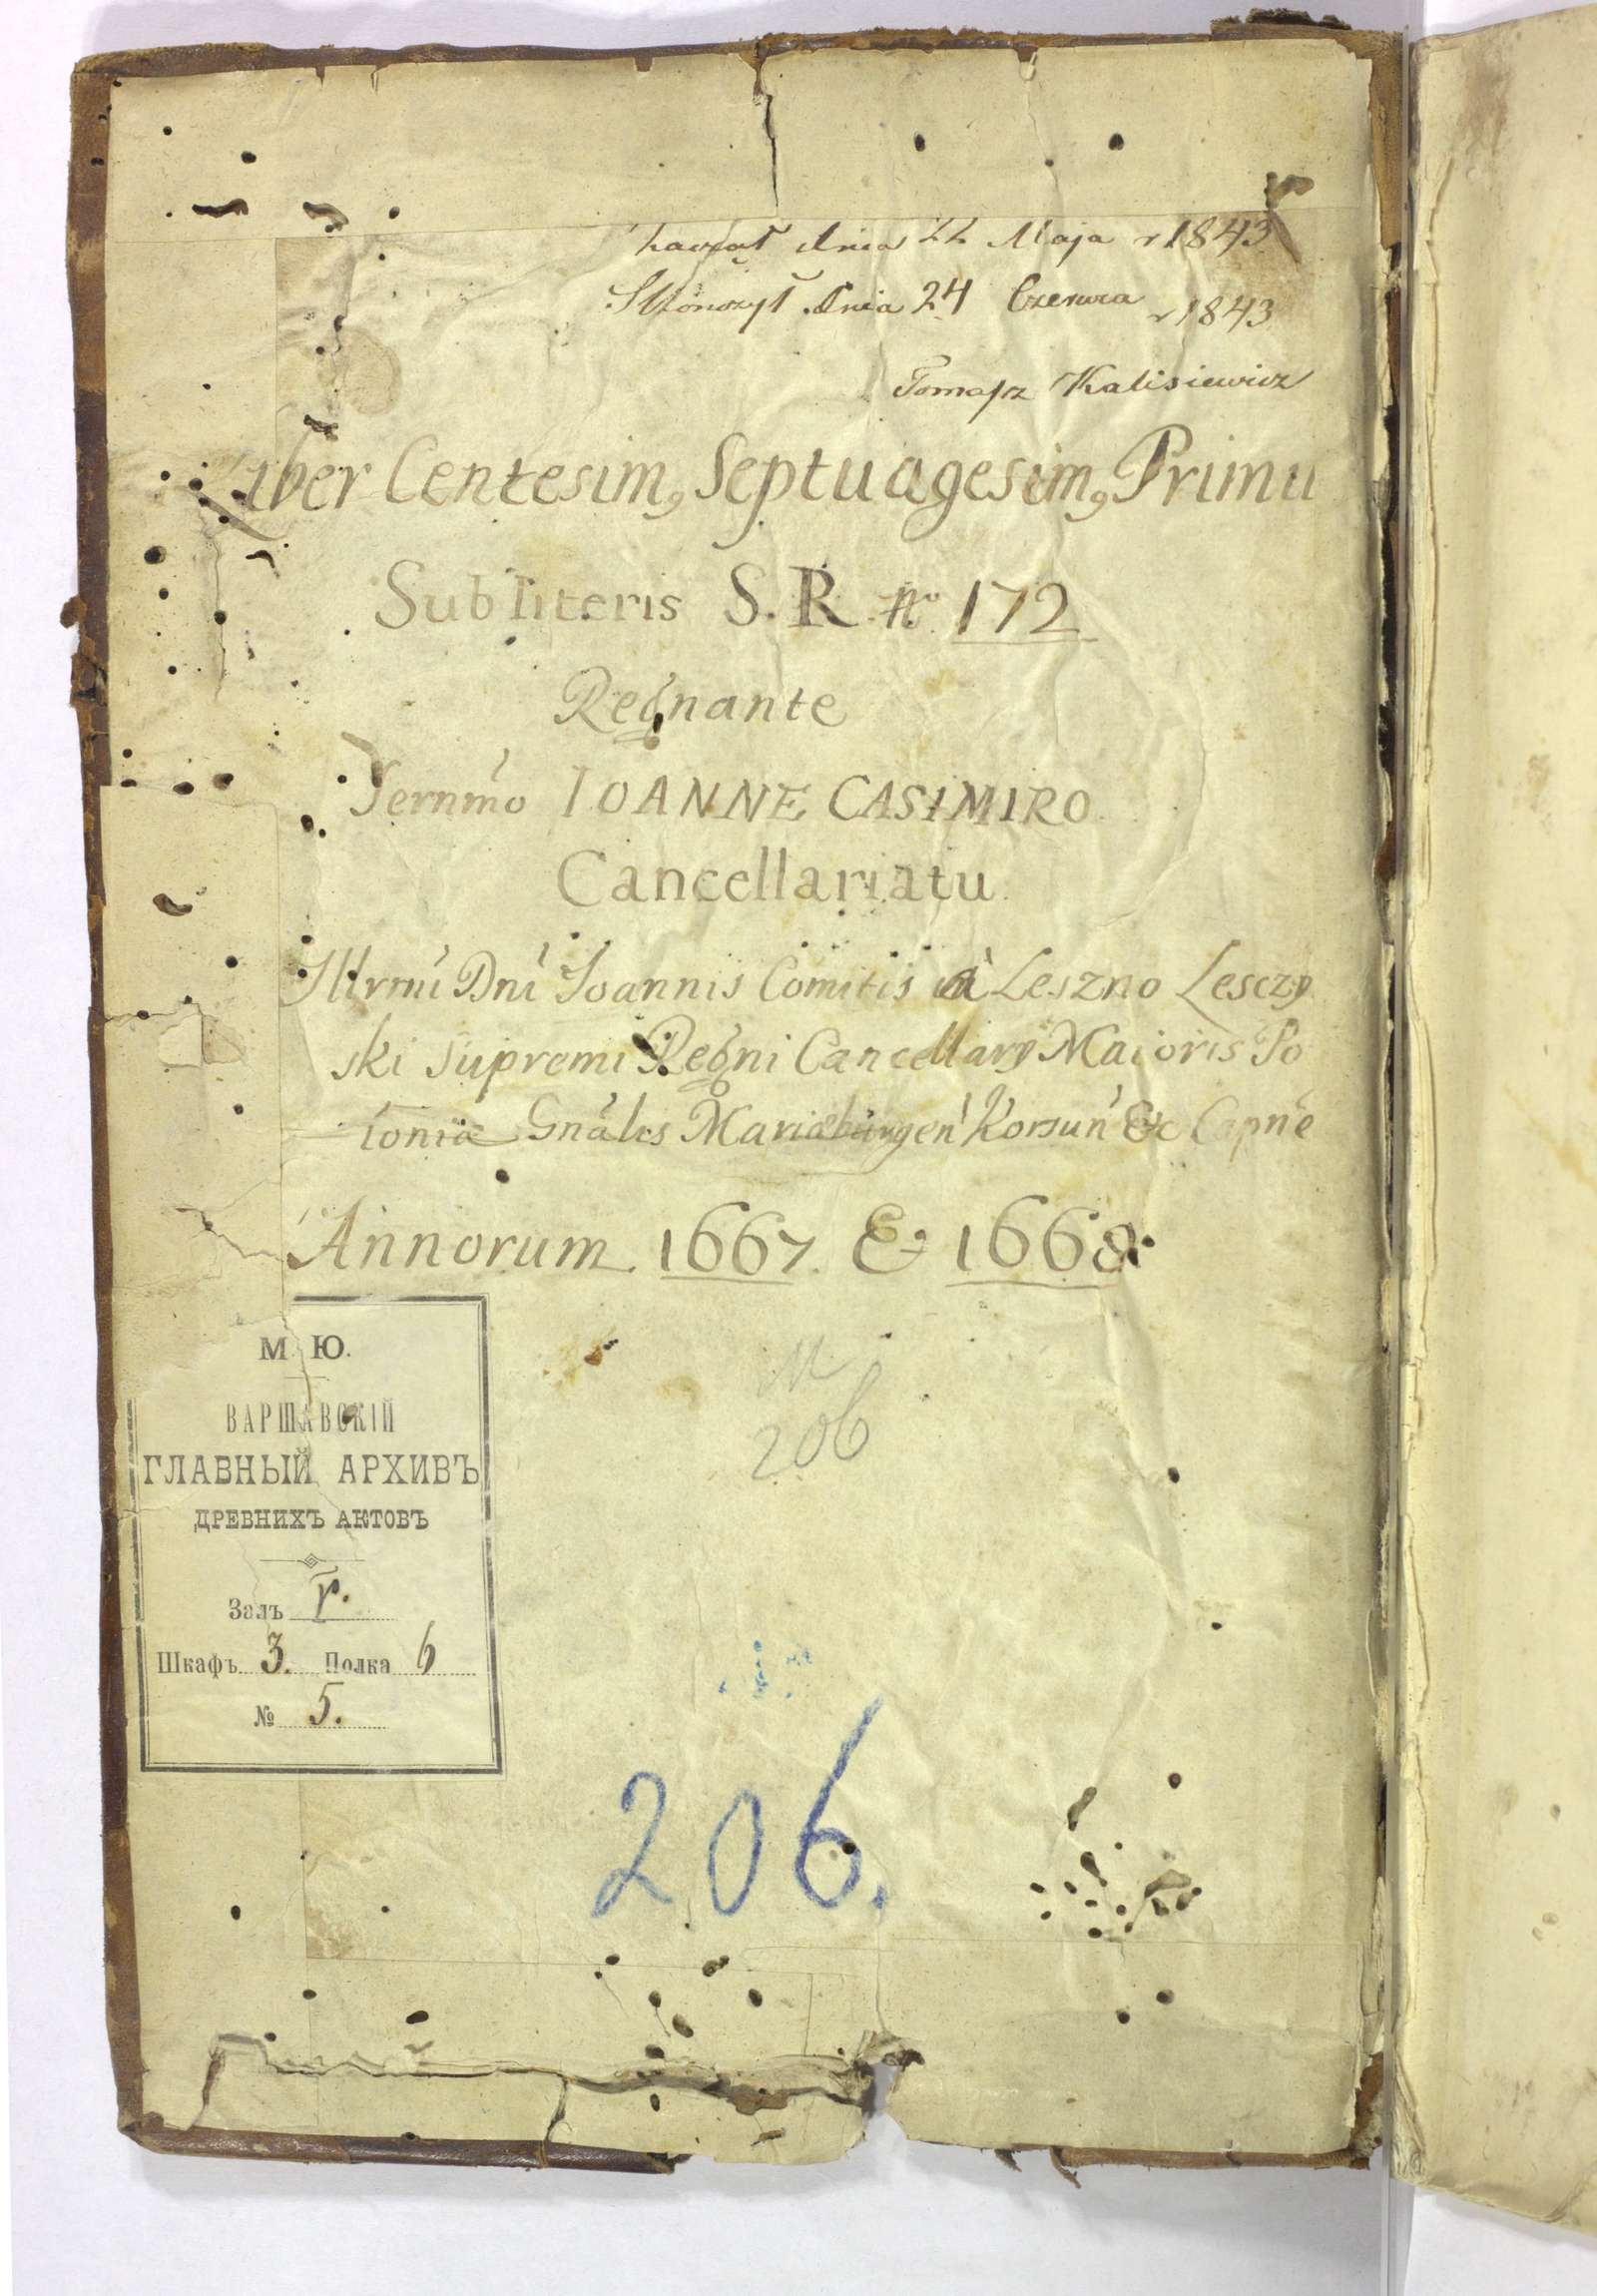 zaczął dnia 22 Maja r 1843
Skończył dnia 24 Czerwca r 1843
Tomasz Kalisiewicz
Liber Centesim9 Septuagesim9 Primu
Sub literis S. R. No 172
Regnante
Sernmo IOANNE CASIMIRO
Cancellariatu
Illrmi Dni Ioannis Comitis à Leszno Lesczy
ski Supremi Regni Cancellarij Maioris Po
loniæ Gnalis Mariæburgen Korsun &c Capne
Annorum 1667. & 1668
М. Ю.
ВАРШАВСКІЙ
ГЛАВНЫЙ АРХИВЪ
ДРЕВНИХЪ АКТОВЪ
Залъ
Шкафъ 3. Полка 6
№ 5.
206
206.